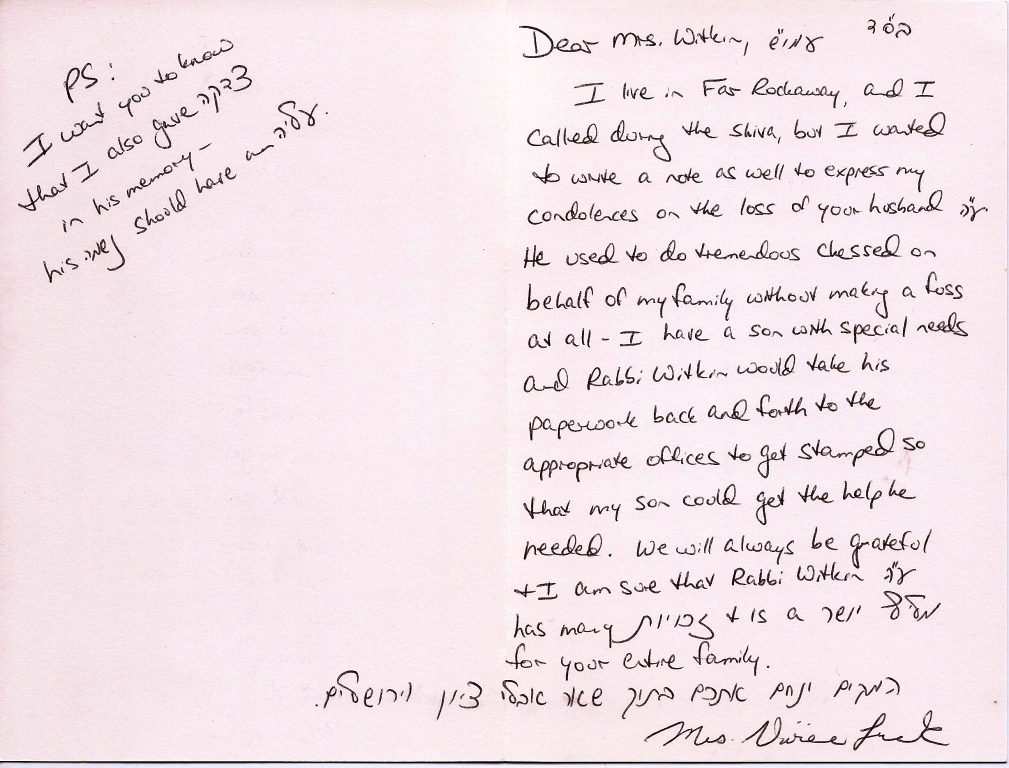 בס"ד
Dear Mrs. Witkin, עמו"ש
I live in Far Rockaway, and I
called during the shiva, but I wanted
to write a note as well to express my
condolences on the loss of your husband ע"ה
He used to do tremendous chessed on
behalf of my family without making a fuss
at all - I have a son with special needs
and Rabbi Witkin would take his
paperwork back and forth to the
appropriate offices to get stamped so
that my son could get the help he
needed. We will always be grateful
+ I am sure that Rabbi Witkin ע"ה
has many זכויות + is a מליץ יושר
for your entire family.
המקום ינחם אתכם בתוך שאר אבלי ציון וירושלים.
Mrs.
PS:
I want you to know
that I also gave צדקה
in his memory -
his נשמה should have an עליה.